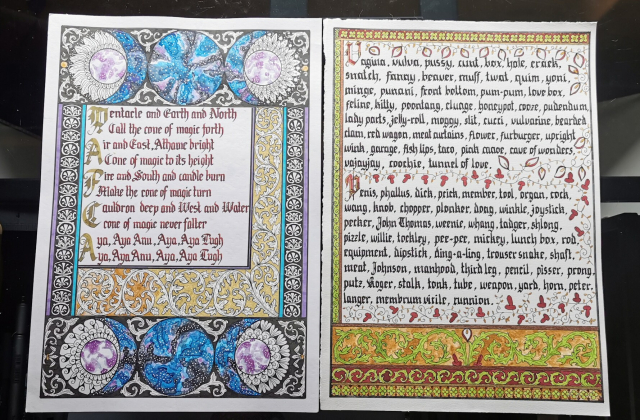 Pentacle and Earth and North
Call the cone of magic forth
Air and East, Athame bright
A Cone of magic to its height
Fire and South and candle burn
Make the cone of magic turn
Cauldron deep and West and Water
Cone of magic never falter
Aya, Aya Anu, Aya, Aya Lugh
Aya, Aya Anu, Aya, Aya Lugh
Vagina, vulva, pussy, cunt, box, hole, crack,
snatch, fanny, beaver, muff, twat, quim, yoni,
minge, punani, front bottom, pum-pum, love box,
feline, kitty, poontang, clunge, honeypot, cooze, pudendum,
lady parts, jelly-roll, moggy, slit, cucci, vulvarine, bearded
clam, red wagon, meat curtains, flower, furburger, upright
wink, garage, fish lips, taco, pink canoe, cave of wonders,
vajayjay, coochie, tunnel of love.
Penis, phallus, dick, prick, member, tool, organ, cock,
wang, knob, chopper, plonker, dong, winkle, joystick,
pecker, John Thomas, weenie, whang, tadger, shlong,
pizzle, willie, tockley, pee-pee, mickey, lunch box, rod,
equipment, dipstick, ding-a-ling, trouser snake, shaft,
meat, Johnson, manhood, third leg, pencil, pisser, prong,
putz, Roger, stalk, tonk, tube, weapon, yard, horn, peter,
langer, membrum virile, runnion.